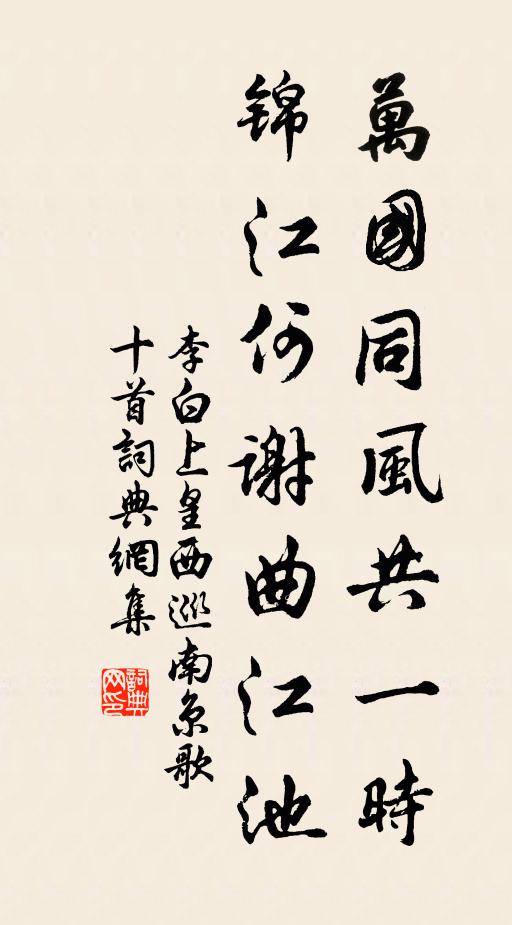 萬國同風共一時
錦江何謝曲江池
李白上皇西巡南京歌
十首詞典網集
詞典网印